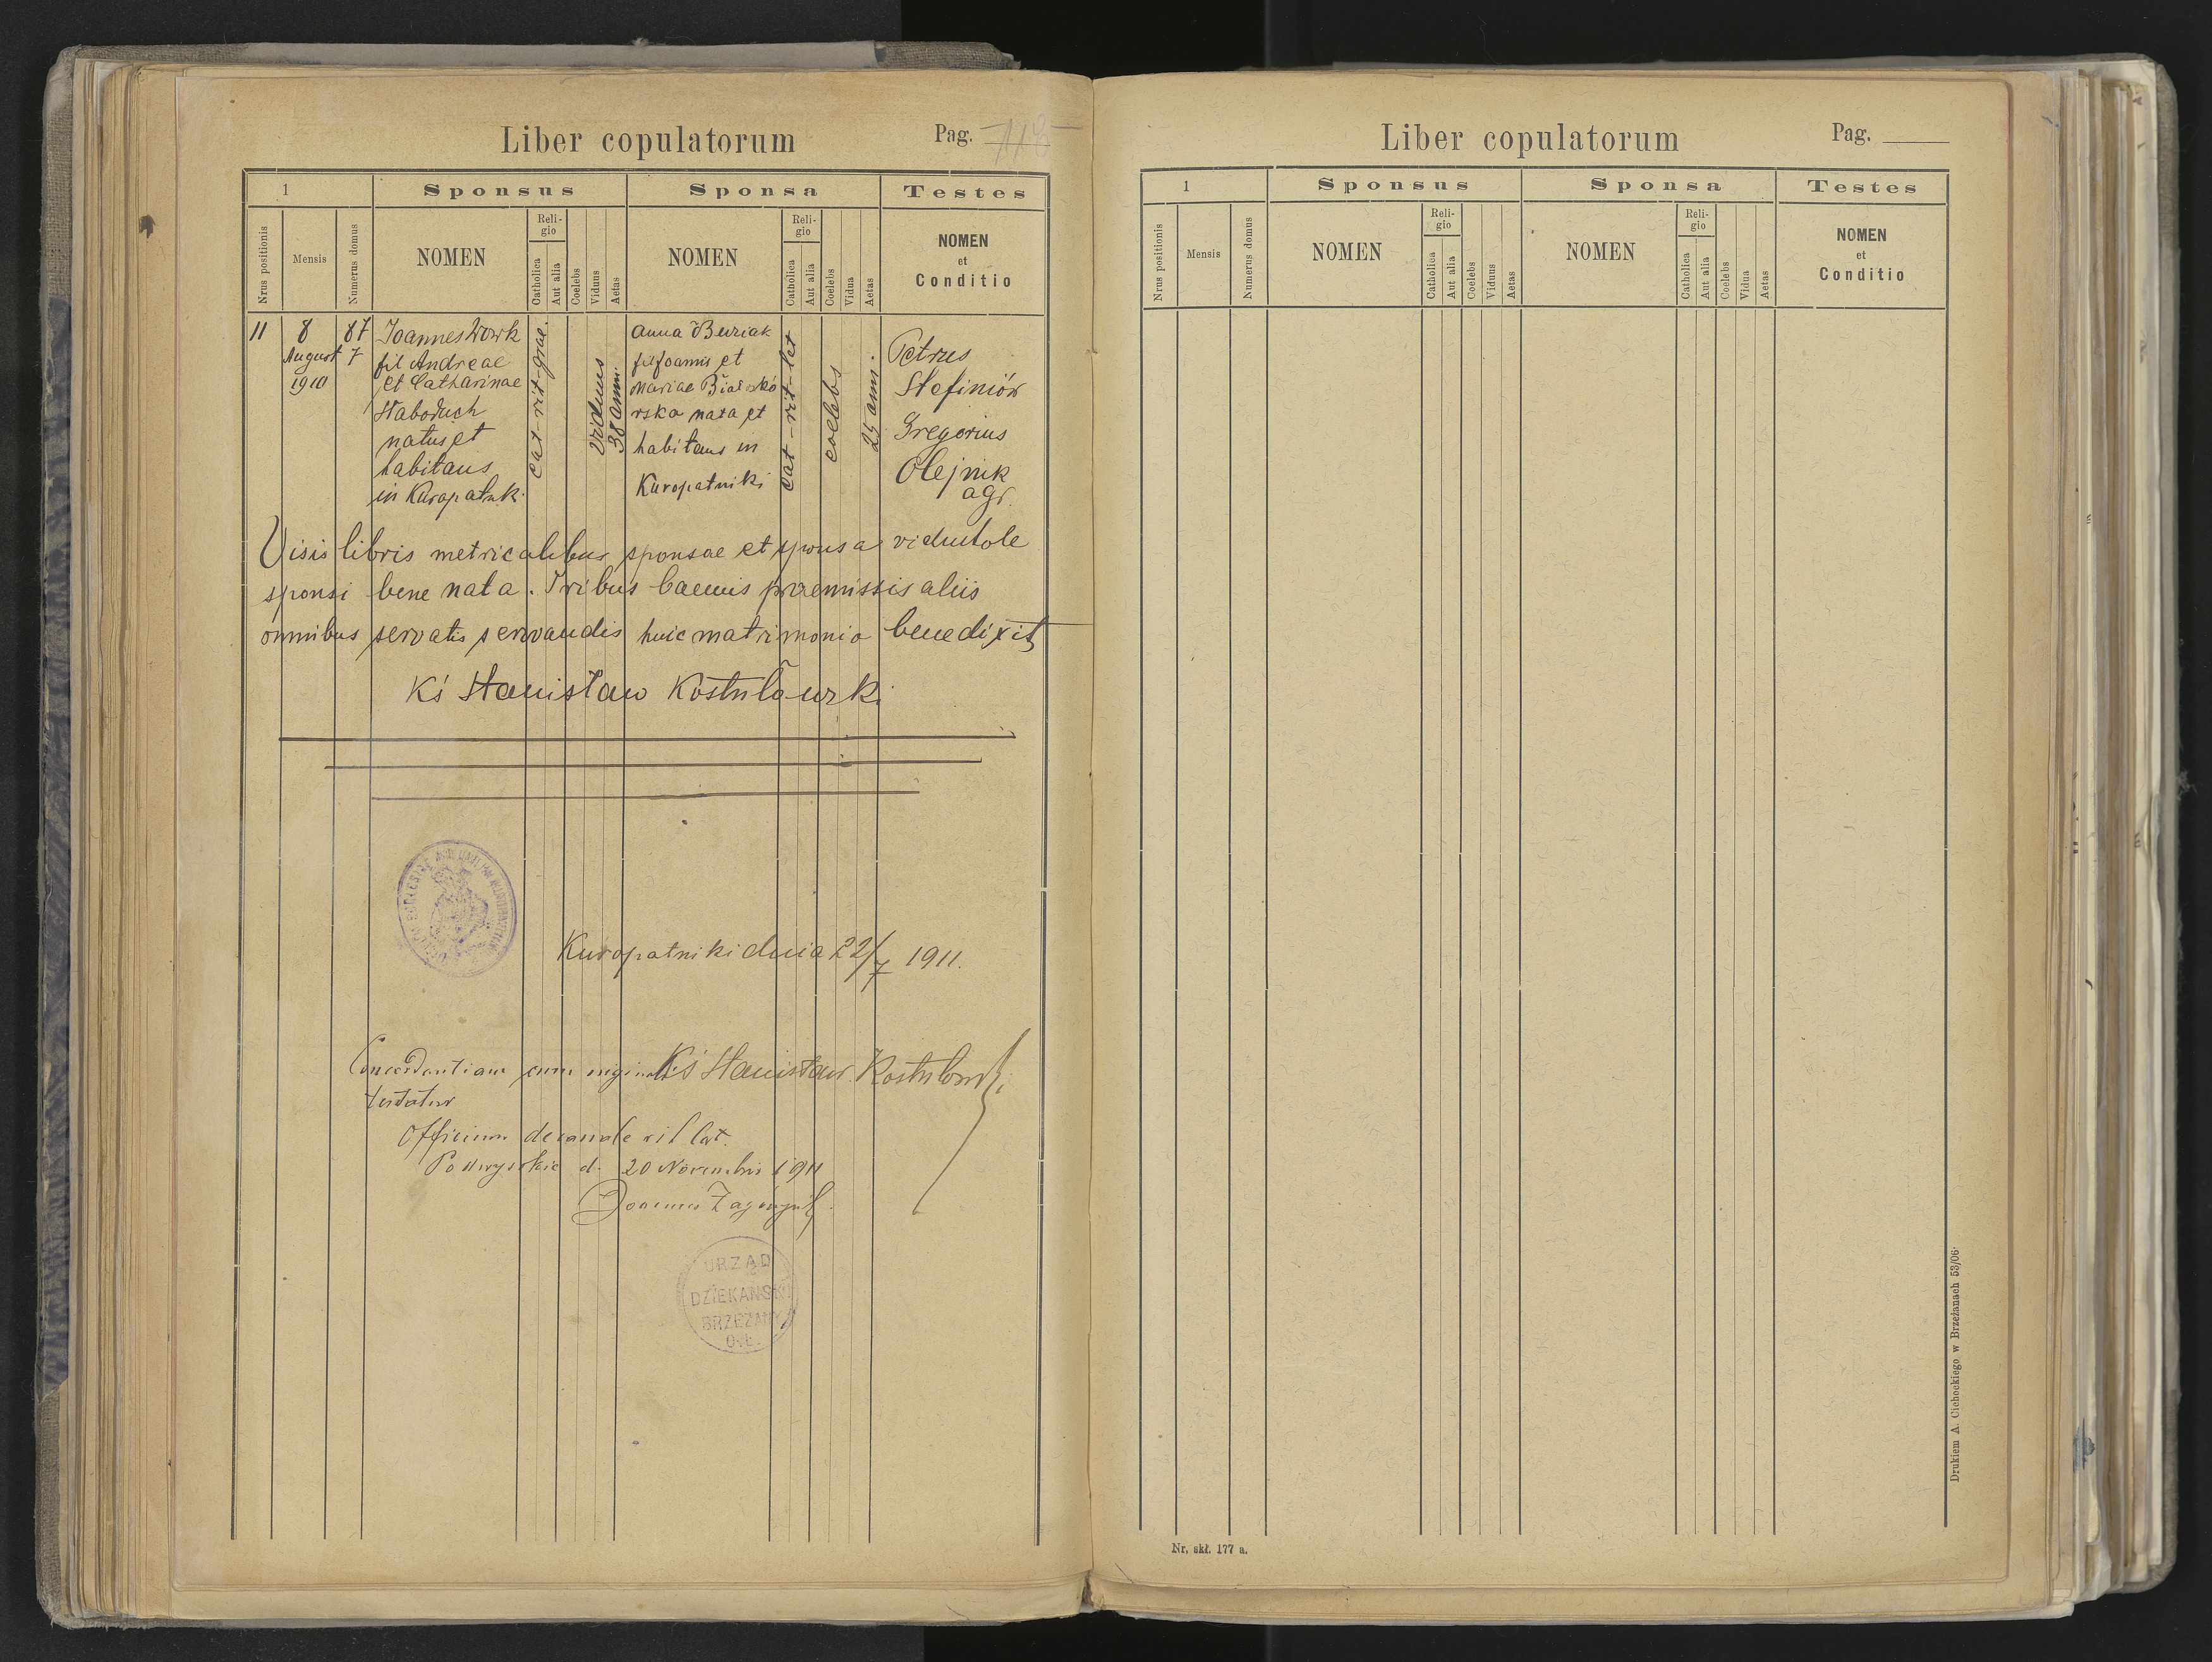 Liber copulatorum
Pag. 118
1
Sponsus
Sponsa
Testes
Nrus positionis
Mensis
Numerus domus
NOMEN
Religio
Catholica
Aut alia
Coelebs
Viduus
Aetas
NOMEN
Religio
Catholica
Aut alia
Coelebs
Vidua
Aetas
NOMEN
et
Conditio
11
8
August
1910
87
7
Joannes Wowk
fil Andreae
et Catharinae
Staboduch
natus et
habitans
in Kuropatnik
cat-rit-grae.
viduus
38 anni.
Anna Buriak
fil Joannis et
Mariae
rska nata et
habitans in
Kuropatniki
cat-rit-lat
coelebs
25 anni.
Petrus
Stefiniów
Gregorius
Olejnik
agr.
Visis libris metricalibus sponsae et
sponsi bene nata. Tribus praemissis aliis
omnibus servatis servandis huic matrimonio benedixit
Kś Stanisław
Kuropatniki dnia 22/7 1911.
Concordantiam cum originali
Kś Stanisław
testatur
Officium decanale rit lat.
Podwysokie d. 20 Novembris 1911
Joannes
URZĄD
DZIEKAŃSKI
BRZEŻANY
Liber copulatorum
Pag.
1
Sponsus
Sponsa
Testes
Nrus positionis
Mensis
Numerus domus
NOMEN
Religio
Catholica
Aut alia
Coelebs
Viduus
Aetas
NOMEN
Religio
Catholica
Aut alia
Coelebs
Vidua
Aetas
NOMEN
et
Conditio
Drukiem A. Cichockiego w Brzeżanach 53/06·
Nr. skł. 177 a.